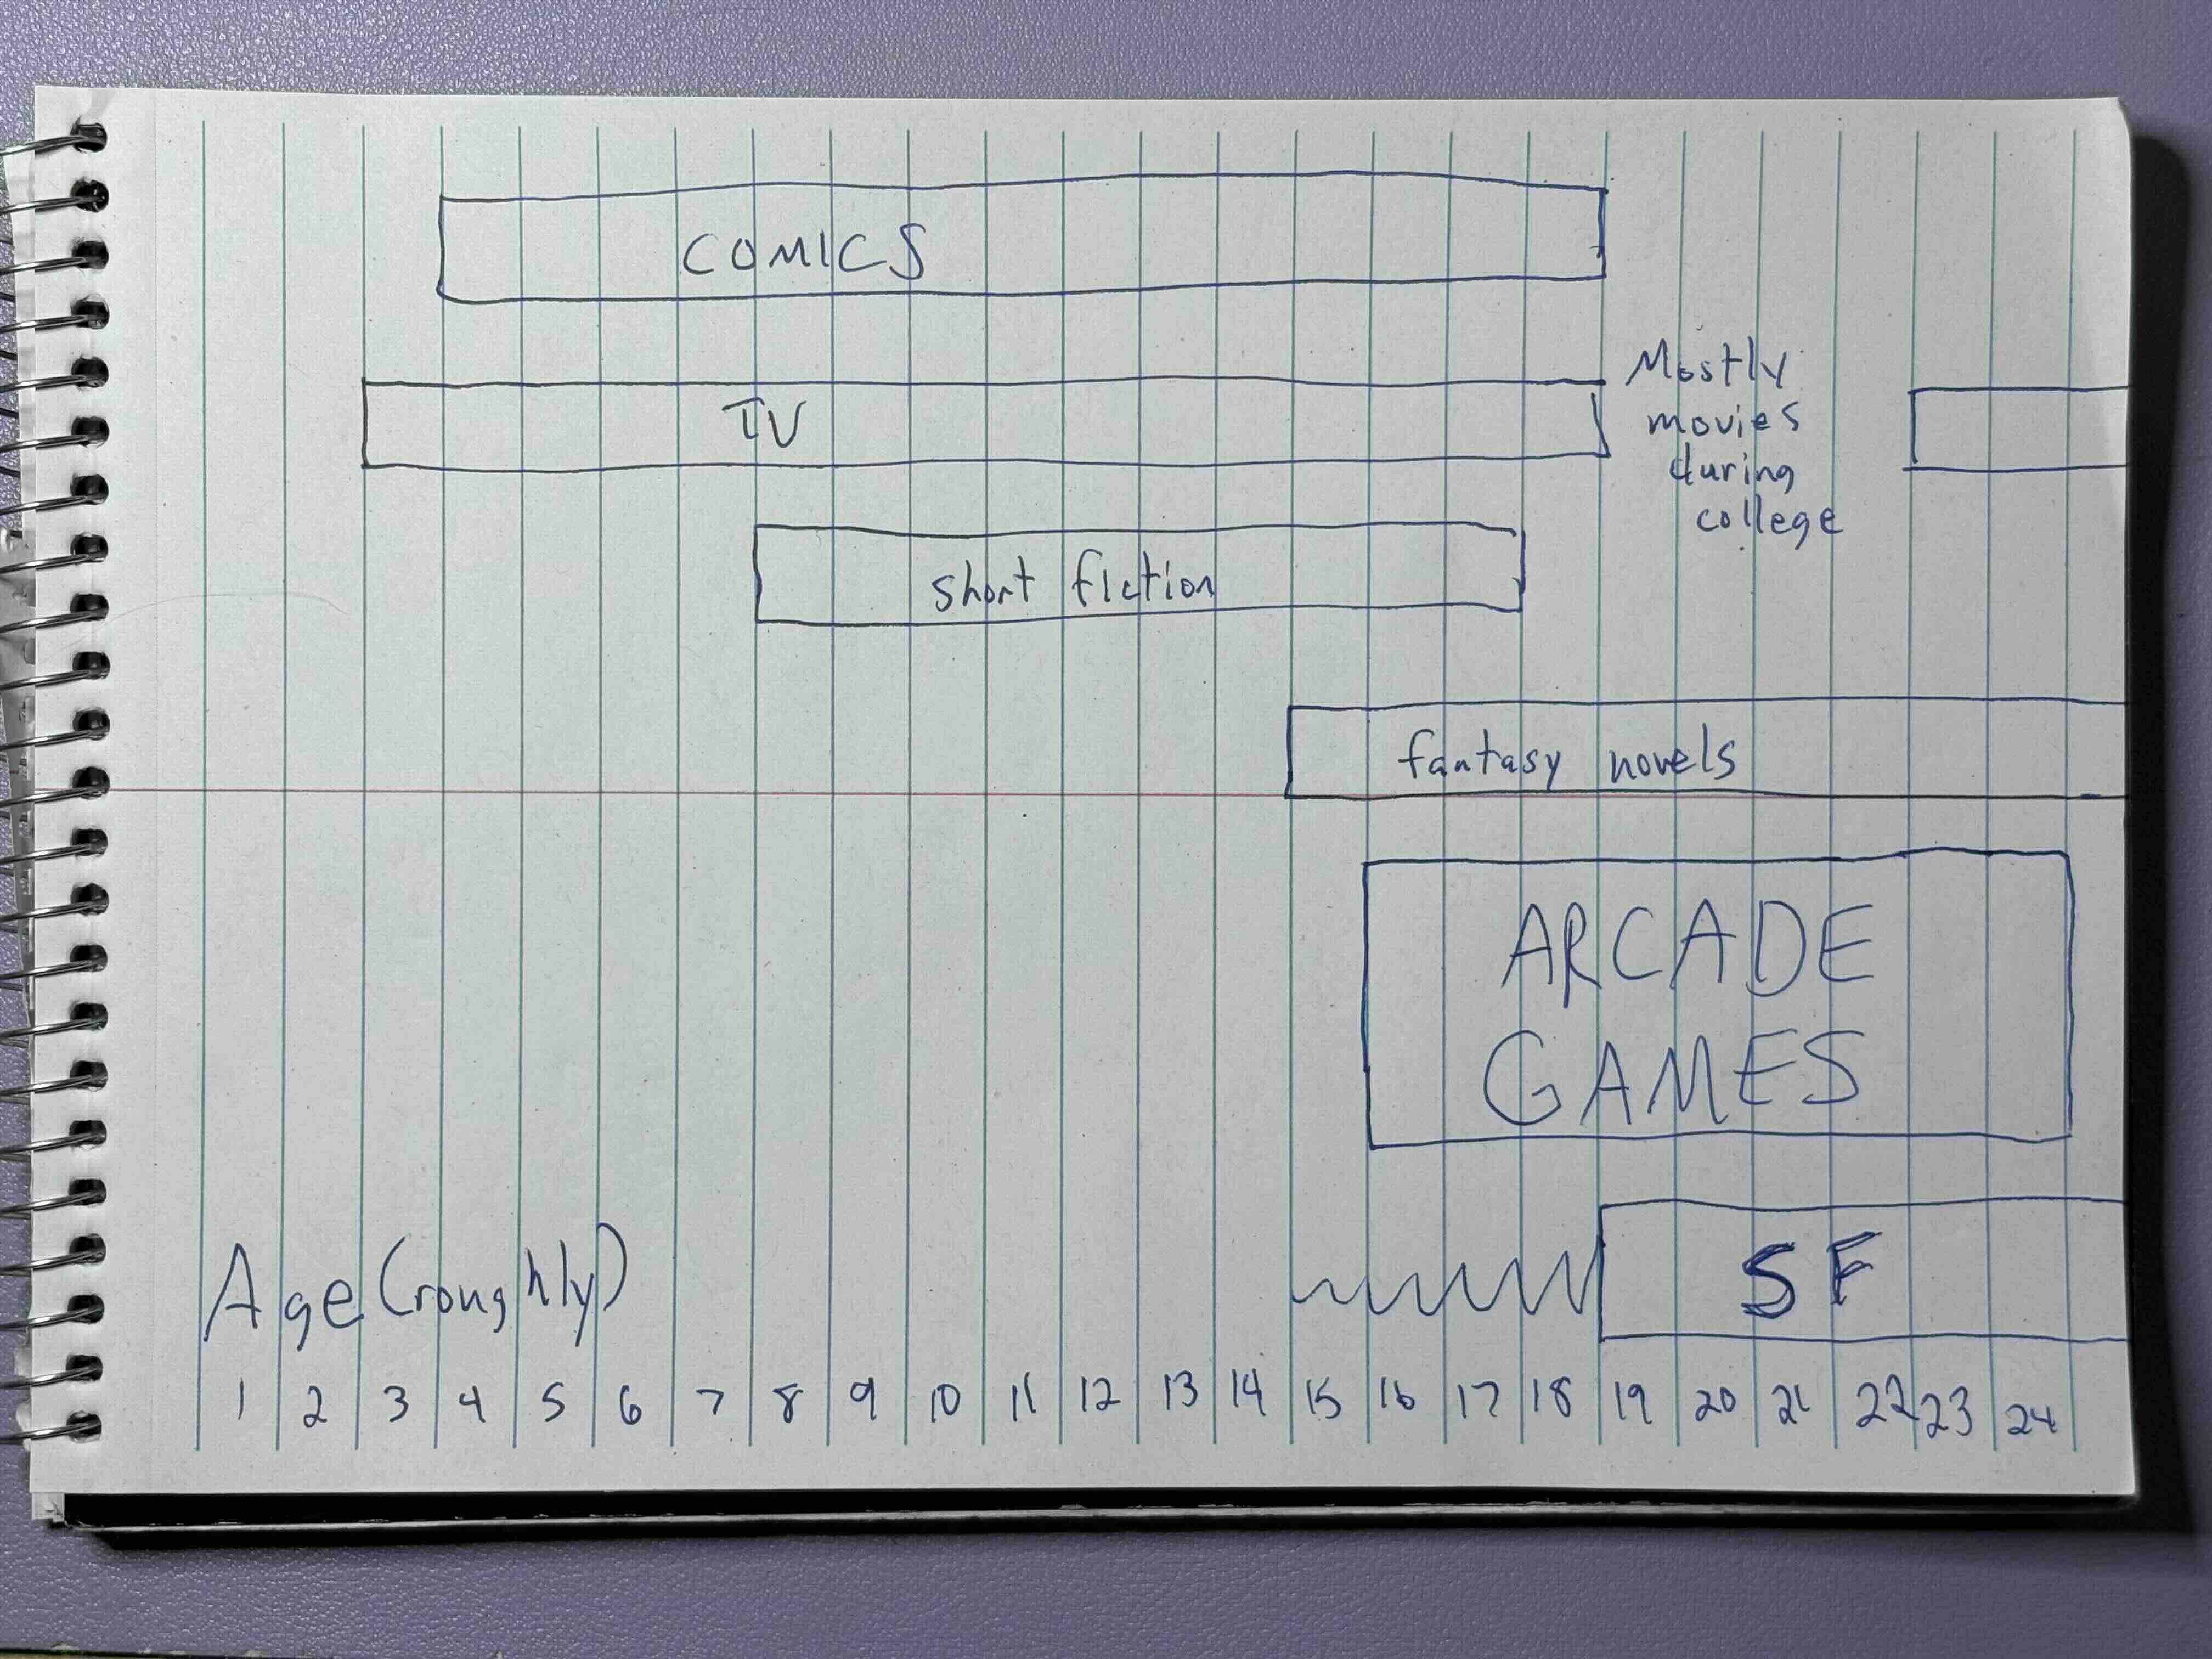 COMICS
TV
Mostly
movies
during
college
short fiction
fantasy novels
ARCADE
GAMES
SF
Age (roughly)
1 2 3 4 5 6 7 8 9 10 11 12 13 14 15 16 17 18 19 20 21 22 23 24